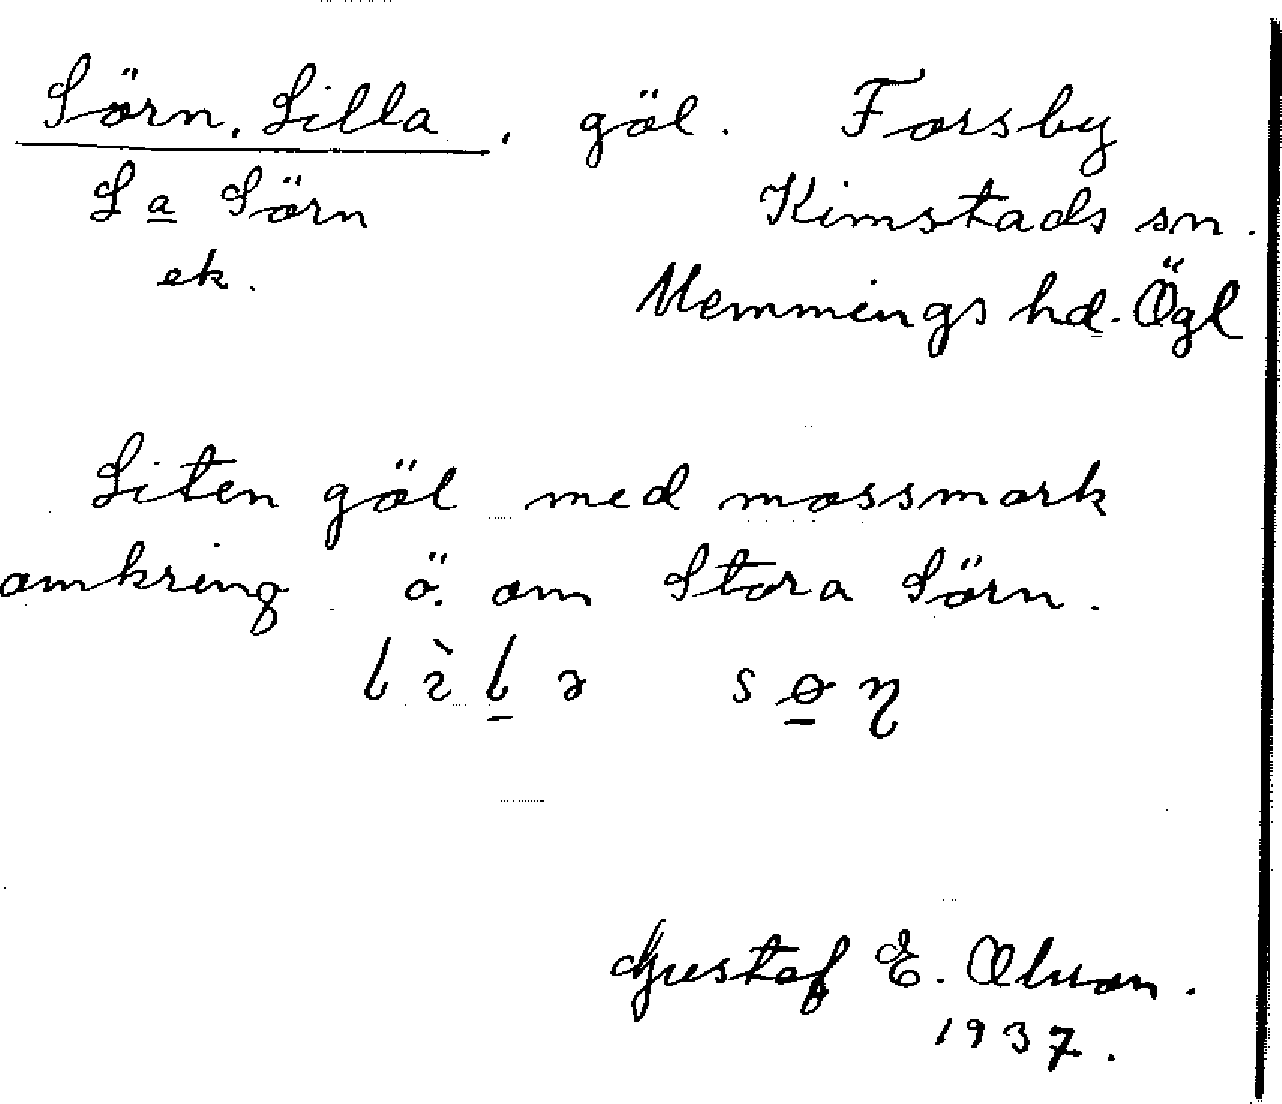 Sörn, Lilla, göl. Forsby
La Sörn Kimstads sn.
ek. Memmings hd. Ögl
Liten göl med mossmark
omkring ö. om Stora Sörn.
Gustaf E.
1937.